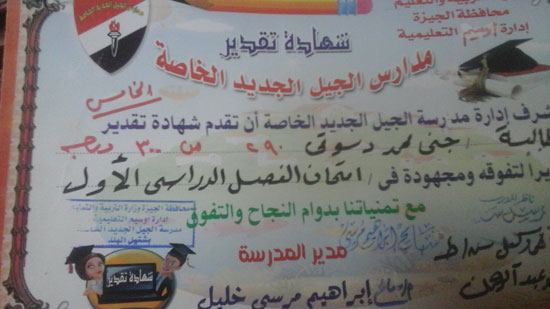 التربية والتعليم
محافظة الجيزة
إدارة أوسيم التعليمية
شهادة تقدير
مدارس الجيل الجديد الخاصة
الخامس
تتشرف إدارة مدرسة الجيل الجديد الخاصة أن تقدم شهادة تقدير
للطالبة / جنى محمد دسوقى ٢٩٠ من ٣٠٠ درجة
لتفوقه ومجهودة فى / امتحان الفصل الدراسى الأول
مع تمنياتنا بدوام النجاح والتفوق
محافظة الجيزة وزارة التربية والتعليم
إدارة أوسيم التعليمية
مدرسة الجيل الجديد الخاصة
مدير المدرسة
إبراهيم مرسى خليل
شهادة تقدير